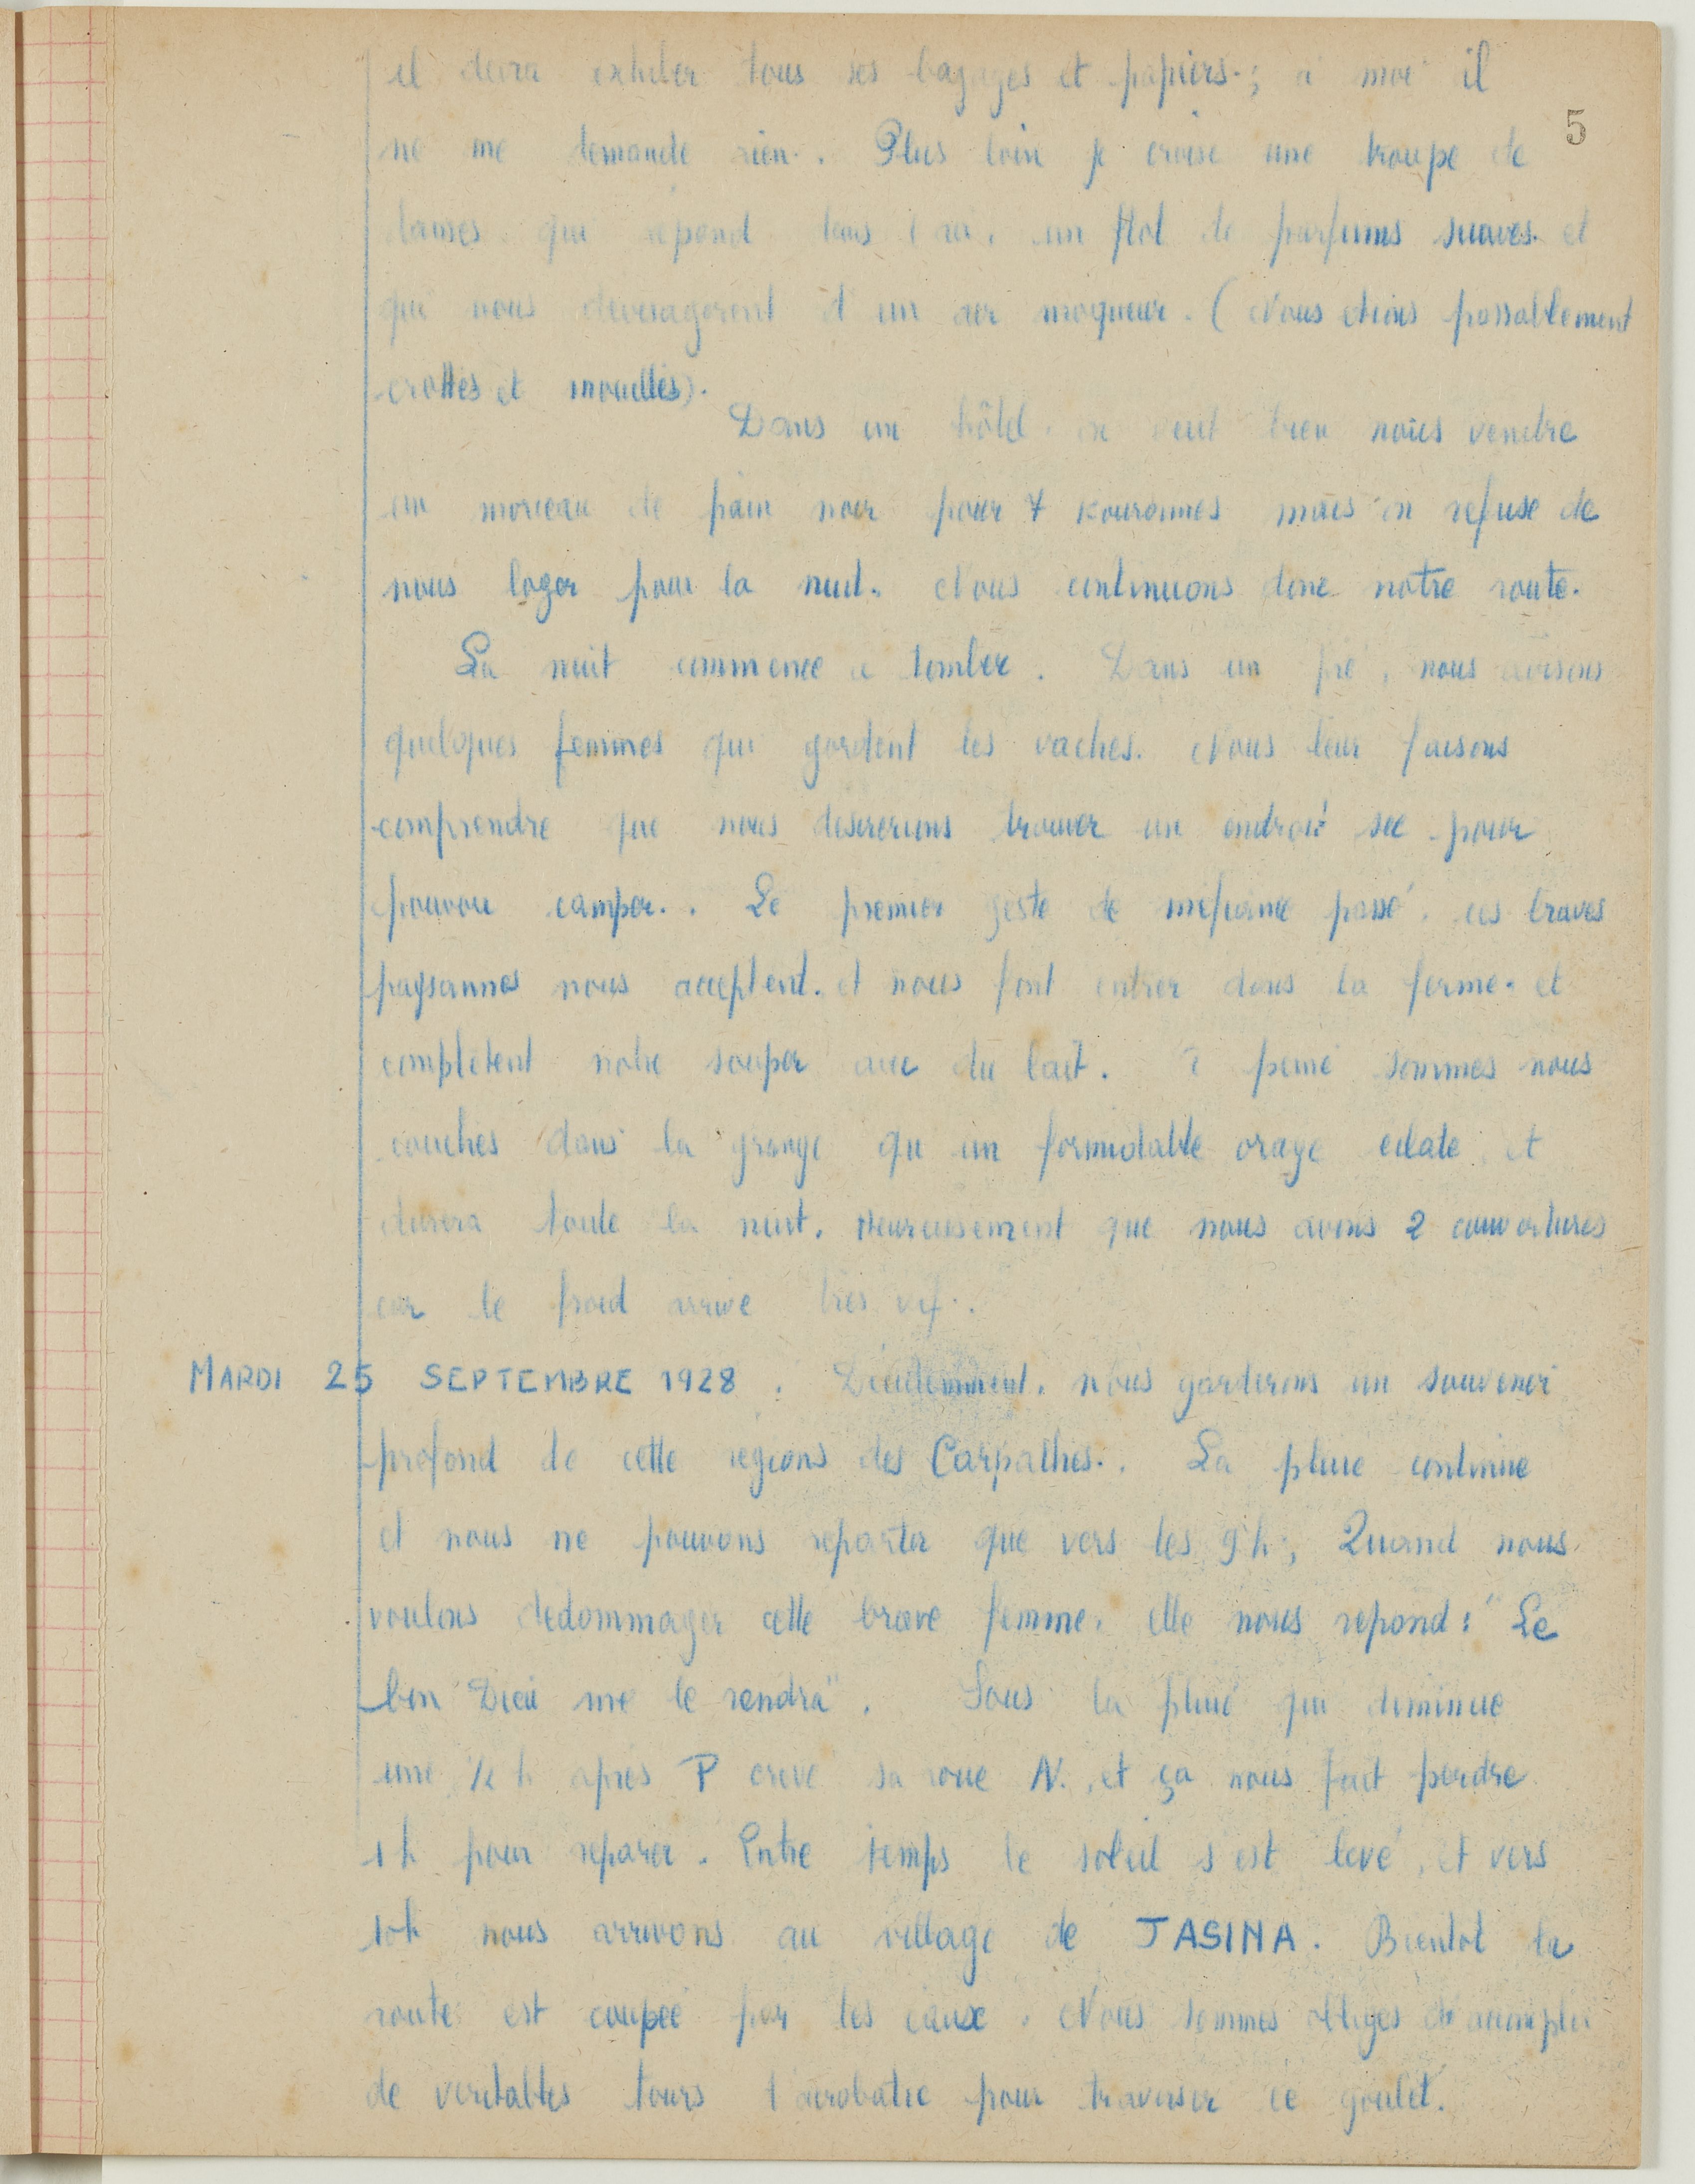 il devra exhiber tous ses bagages et papiers.; à moi il
5
ne me demande rien.. Plus loin je croise une troupe de
dames qui répand dans l'air, un flot de parfums suaves et
qui nous devisagerent d'un air moqueur. (Nous étions passablement
crottés et mouillés).
Dans un hôtel on veut bien nous vendre
un morceau de pain noir pour 7 kouronnes mais on refuse de
nous loger pour la nuit. Nous continuons donc notre route.
La nuit commence à tomber. Dans un pré, nous avisons
quelques femmes qui gardent les vaches. Nous leur faisons
comprendre que nous desirerions trouver un endroit sec pour
pouvoir camper.. Le premier geste de méfiance passé, ces braves
paysannes nous acceptent. et nous font entrer dans la ferme. et
complètent notre souper avec du lait. à peine sommes nous
couchés dans la grange qu'un formidable orage éclate et
durera toute la nuit. Heureusement que nous avons 2 couvertures
car le froid arrive très vif..
MARDI 25 SEPTEMBRE 1928. Décidemment, nous garderons un souvenir
profond de cette régions des Carpathes.. La pluie continue
et nous ne pouvons repartir que vers les 9h; Quand nous
voulons dedommager cette brave femme, elle nous repond: "Le
bon Dieu me le rendra". Sous la pluie qui diminue
une ½ h après P crève sa roue N. et ça nous fait perdre
1h pour reparer. Entre temps le soleil s'est levé, et vers
10h nous arrivons au village de JASINA. Bientot la
route est coupée par les eaux. Nous sommes obligés d'accomplir
de veritables tours d'acrobatie pour traverser ce goulet.